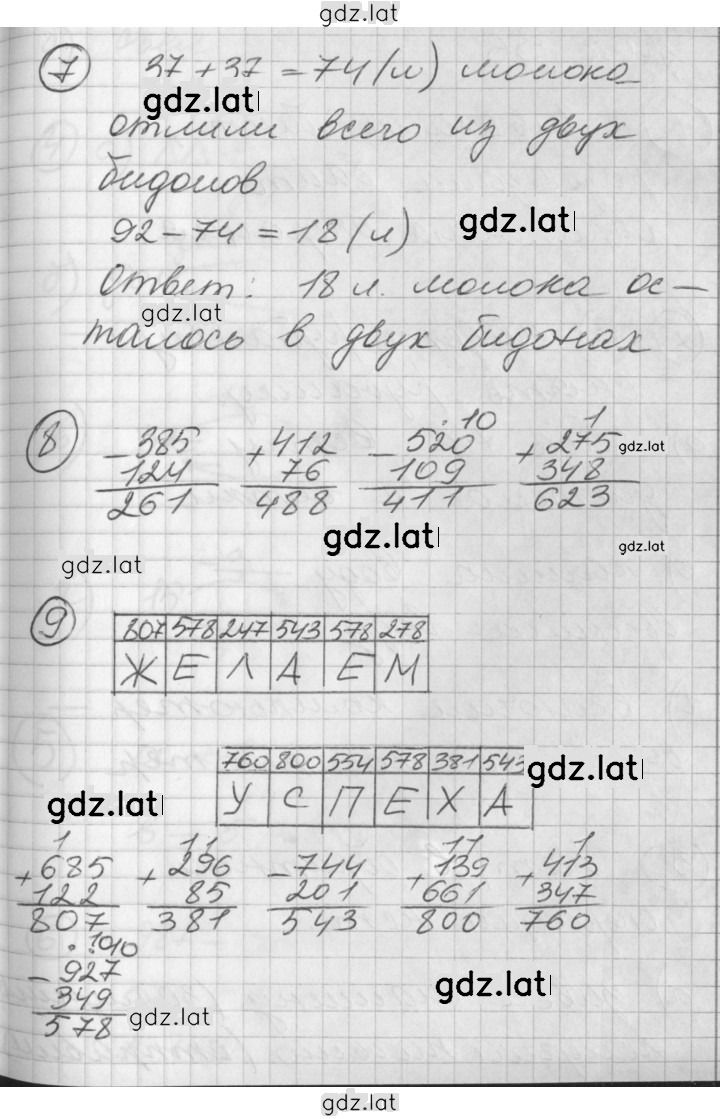 gdz.lat
7 37 + 37 = 74 (л) молока
gdz.lat
отлили всего из двух
бидонов
gdz.lat
92 - 74 = 18 (л)
Ответ: 18 л. молока ос-
gdz.lat
талось в двух бидонах
8
. 10 1
- 385 + 412 - 520 + 275 gdz.lat
124 76 109 348
261 488 411 623
gdz.lat gdz.lat
gdz.lat
9
807 578 247 543 578 278
Ж Е Л А Е М
760 800 554 578 381 543
gdz.lat
У С П Е Х А
gdz.lat
1 11 11 1
+ 685 + 296 - 744 + 139 + 413
122 85 201 661 347
807 381 543 800 760
. . 10 10
- 927
349
gdz.lat
gdz.lat
578
gdz.lat